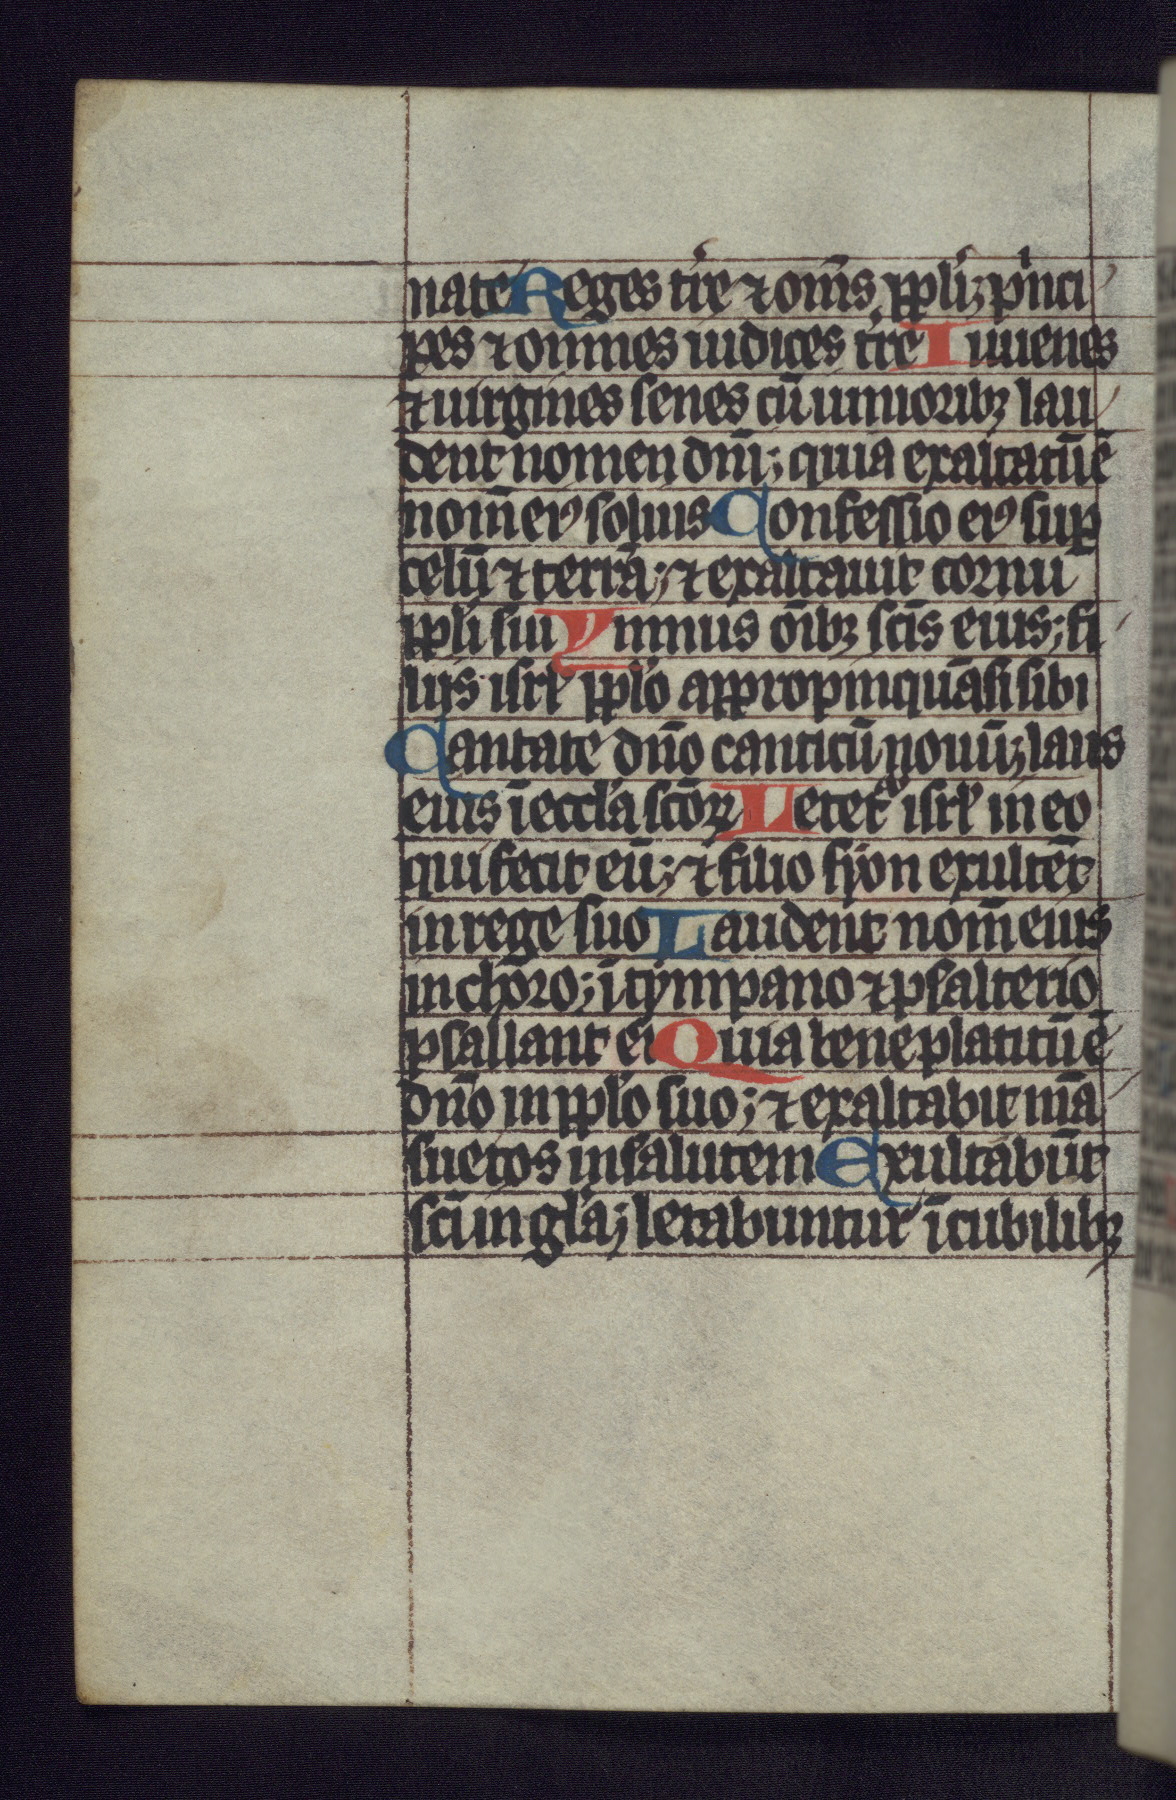 nate Reges tr̄e ⁊ om̄s ppl̄i; pͥnci
pes ⁊ omnes iudices tr̄e Iuuenes
⁊ uirgines senes cū iunioribꝫ lau
dent nomen dn̄i; quia exaltatū ē
nom̄ eiꝰ solius Confessio eiꝰ suꝑ
celū ⁊ terrā; ⁊ exaltauit cornu
ppl̄i sui Ymnus oībꝫ sc̄is eius; fi
liis isrl̄ ppl̄o appropinquāti sibi
Cantate dn̄o canticū nouū; laus
eius ī eccl̄a sc̄oꝝ Letet᷑ isrl̄ in eo
qui fecit eū; ⁊ filio syon exultēt
in rege suo Laudent nom̄ eius
in choro; ī tympano ⁊ psalterio
psallant ei Quia beneplatitū ē
dn̄o in ppl̄o suo; ⁊ exaltabit mā
suetos in salutem Exultabūt
sc̄i in gl̄a; letabuntur ī cubilibꝫ